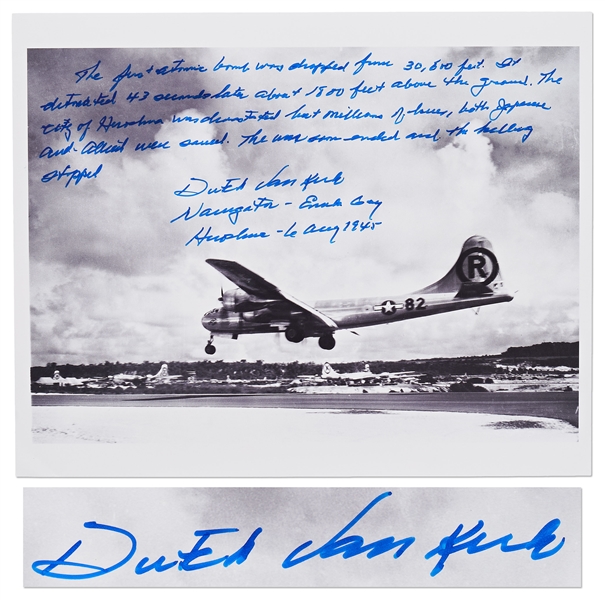 The first atomic bomb was dropped from 30,600 feet. It
detonated 43 seconds later about 1800 feet above the ground. The
city of Hiroshima was devastated but millions of lives, both Japanese
and Allied were saved. The war soon ended and the killing
stopped
Dutch Van Kirk
Navigator - Enola Gay
Hiroshima - 6 Aug 1945
R
82
Dutch Van Kirk